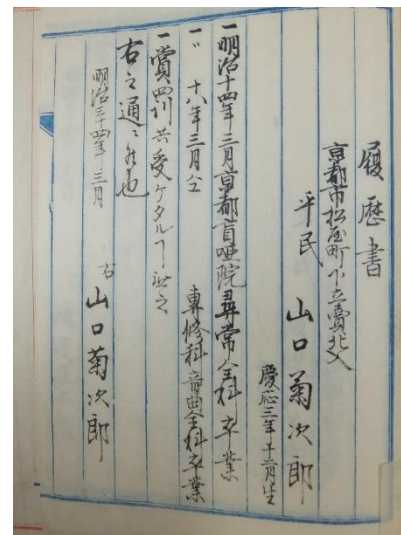 履歴書
京都市松屋町下立賣北入
平民 山口菊次郎
慶応三年十二月生
一明治十四年三月京都盲唖院尋常全科卒業
一〃十八年三月仝 専修科音曲全科卒業
一賞罰共受ケタルヿ無之
右之通ニ候也
明治三十四年三月
右 山口菊次郎